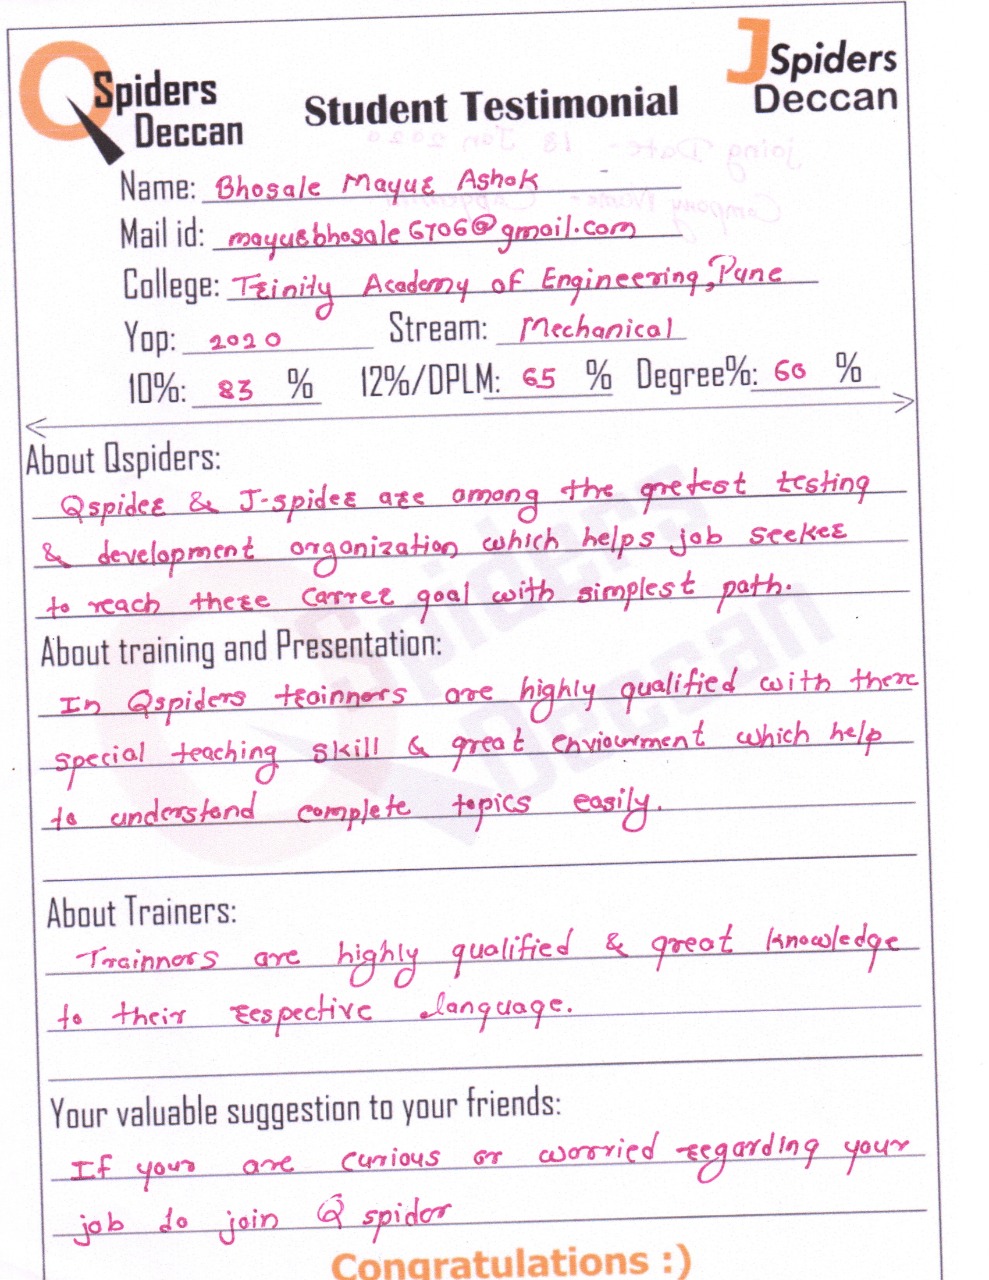 QSpiders
Deccan
Student Testimonial
JSpiders
Deccan
Joing Date - 18 Jan 2020
Company Name - Capgemini
Name: Bhosale Mayur Ashok
Mail id: mayurbhosale6706@gmail.com
College: Trinity Academy of Engineering, Pune
Yop: 2020 Stream: Mechanical
10%: 83 % 12%/DPLM: 65 % Degree%: 60 %
About Qspiders:
Qspider & J-spider are among the gretest testing
& development organization which helps job seeker
to reach there carrer goal with simplest path.
About training and Presentation:
In Qspiders trainnors are highly qualified with there
special teaching skill & great enviournment which help
to understand complete topics easily.
About Trainers:
Trainnors are highly qualified & great knowledge
to their respective language.
Your valuable suggestion to your friends:
If your are curious or worried regarding your
job to join Q spider
Congratulations :)